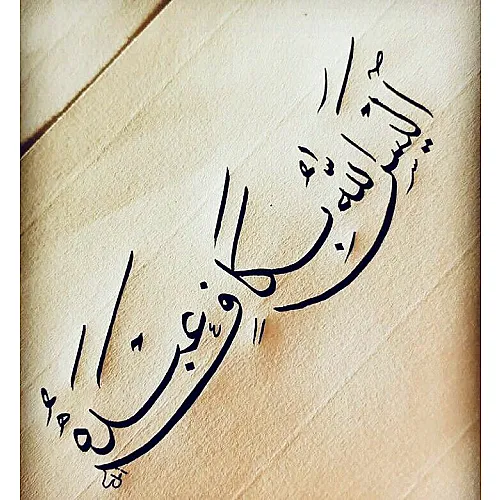 أَلَيْسَ اللَّهُ بِكَافٍ عَبْدَهُ